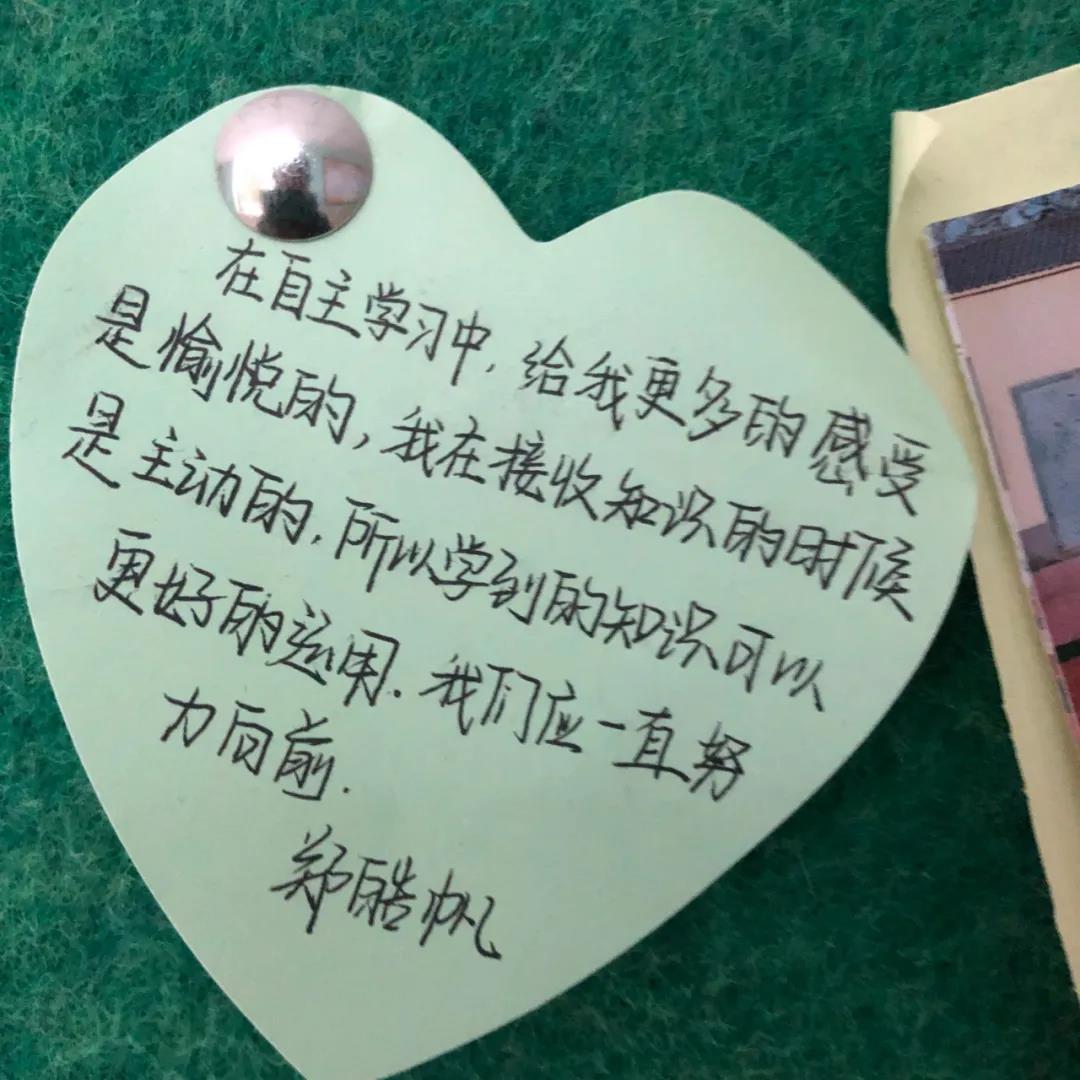 在自主学习中,给我更多的感受
是愉悦的,我在接收知识的时候
是主动的,所以学到的知识可以
更好的运用.我们应一直努
力向前.
郑皓帆